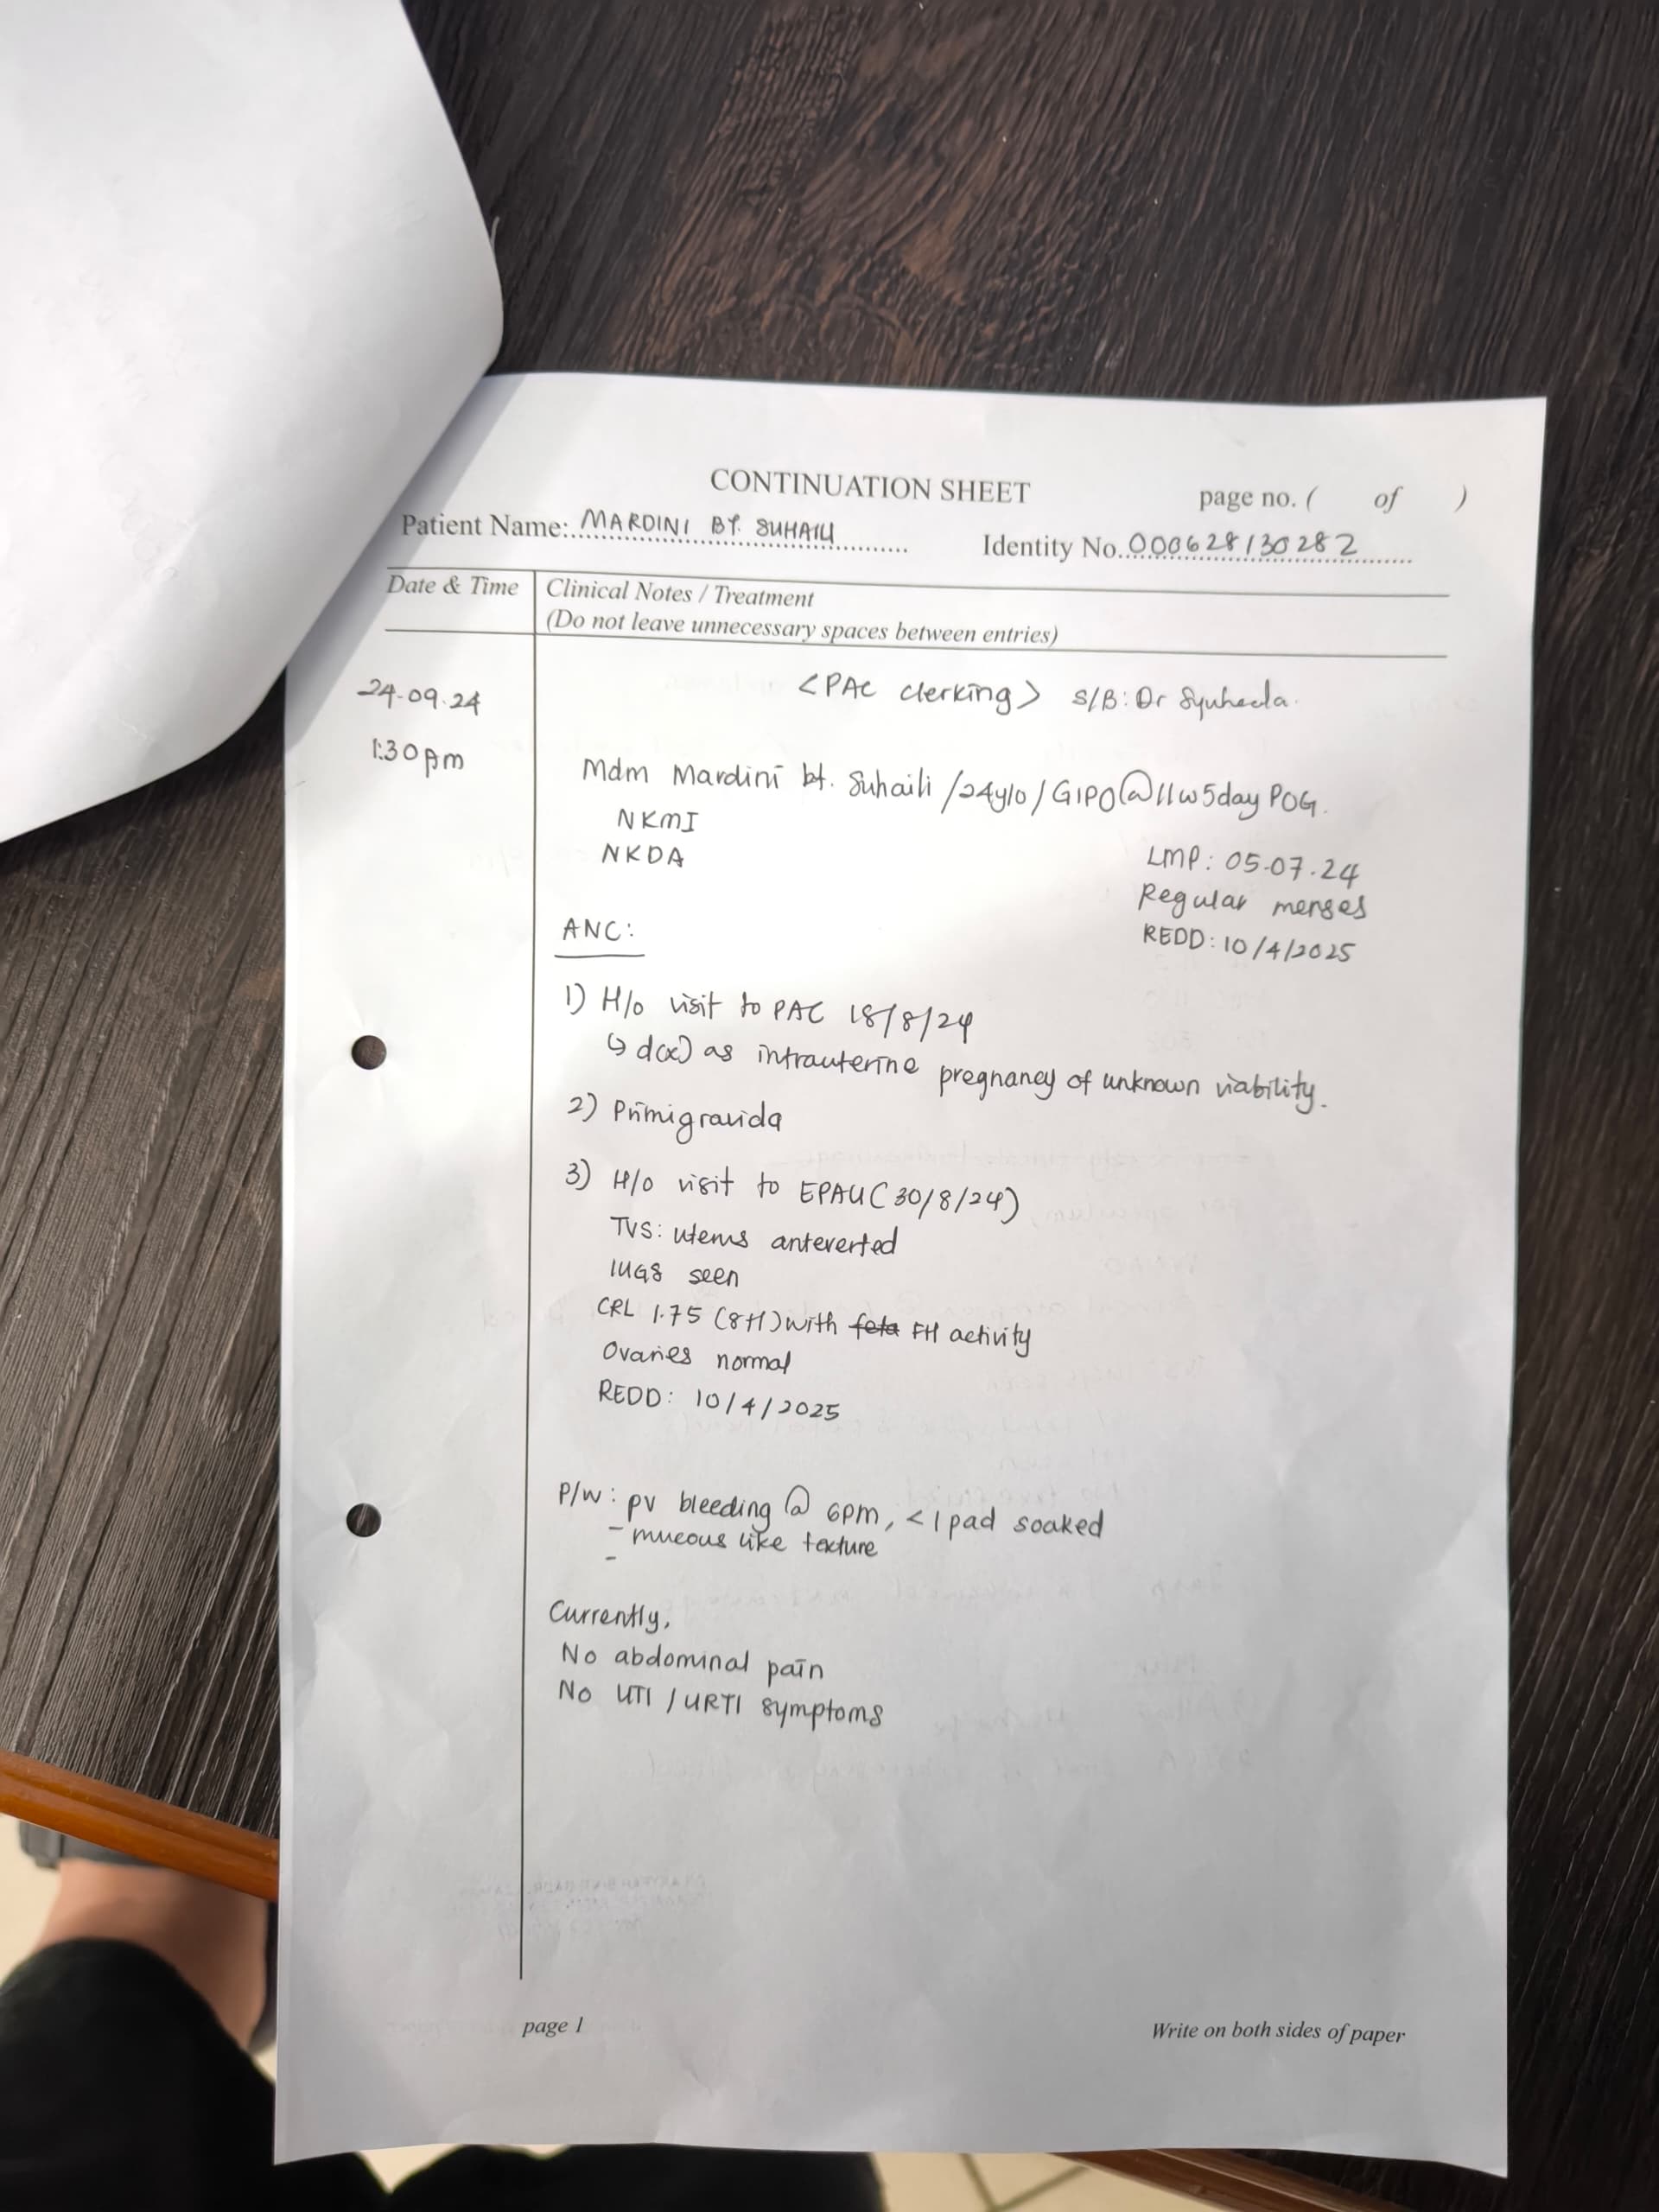 CONTINUATION SHEET
page no. ( of )
Patient Name: MARDINI BT. SUHAILI
Identity No. 000628130282
Date & Time
Clinical Notes / Treatment
(Do not leave unnecessary spaces between entries)
24.09.24
<PAC clerking> S/B: Dr Syuheela.
1:30pm
Mdm Mardini bt. Suhaili /24y/o/ G1P0@11w5day POG.
NKMI
NKDA
LMP: 05.07.24
Regular menses
REDD: 10/4/2025
ANC:
1) H/o visit to PAC 18/8/24
↳ d(x) as intrauterine pregnancy of unknown viability.
2) Primigravida
3) H/o visit to EPAU (30/8/24)
TVS: uterus anteverted
IUGS seen
CRL 1.75 (8+1) with feta FH activity
Ovaries normal
REDD: 10/4/2025
P/W: pv bleeding @ 6pm, <1 pad soaked
- mucous like texture
-
Currently,
No abdominal pain
No UTI / URTI symptoms
page 1
Write on both sides of paper